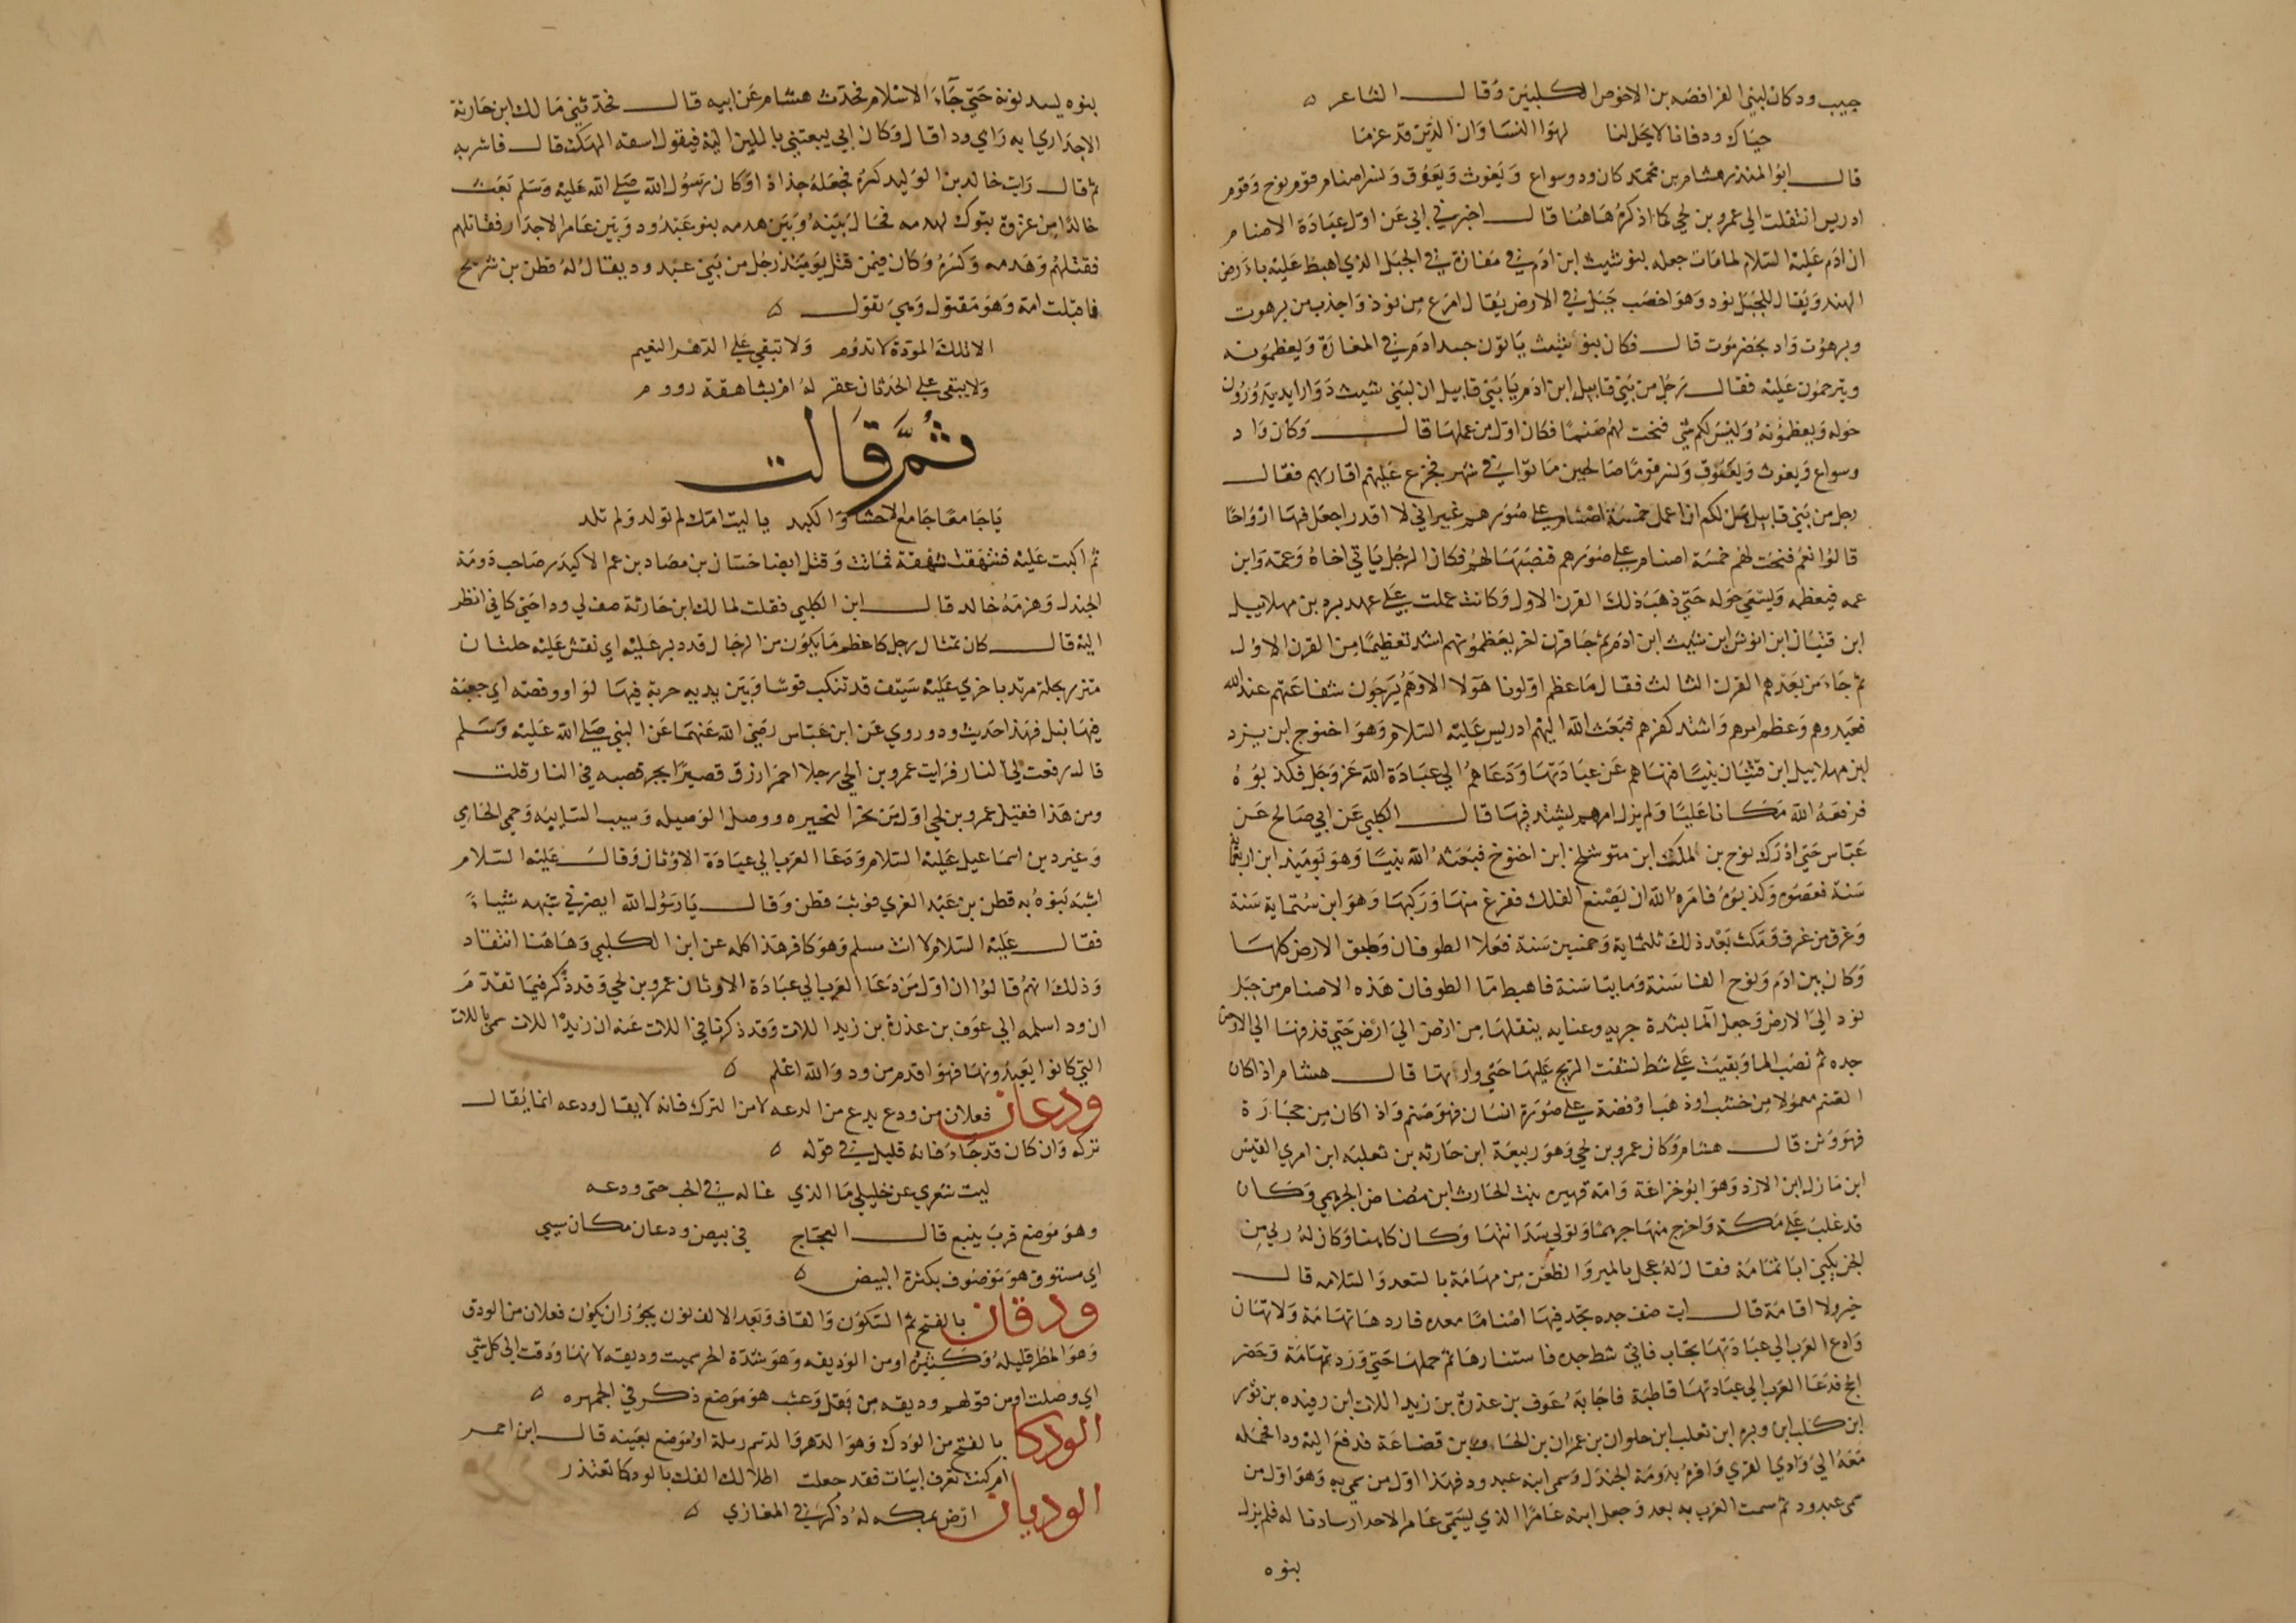 حبيب ود كان لبني الفرافصه بن الاحوص الكلبيين وقال الشاعر ه
حياك ود فانا لا يحل لنا لهو النسا وان الدين قد عزما
قال ابو المنذر هشام بن محمد كان ود وسواع ويغوث ويعوق ونسر اصنام قوم نوح وقوم
ادريس انتقلت الي عمرو بن لحي كما اذكره هاهنا قال اخبرني ابي عن اول عبادة الاصنام
ان ادم عليه السلام لما مات جعله بنو شيث ابن ادم في مغارة في الجبل الذي اهبط عليه بارض
الهند ويقال للجبل نود وهو اخصب جبل في الارض يقال امرع من نوذ واجذب من برهوت
وبرهوت واد بحضرموت قال فكان بنو شيث ياتون جسد ادم في المغارة ويعظمونه
ويترحمون عليه فقال رجل من بني قابيل ابن ادم يا بني قابيل ان لبني شيث دوارا يديرون
حوله ويعظمونه وليس لكم شي فنحت لهم صنما فكان اول من عملها قال وكان واد
وسواع ويغوث ويعوق ونسر قوما صالحين ماتوا في شهر فجزع عليهم اقاربهم فقال
رجل من بني قابيل هل لكم ان اعمل خمسة اصنام علي صورهم غير اني لا اقدر اجعل فيها ارواحا
قالوا نعم فنحت لهم خمسة اصنام علي صورهم فنصبها لهم فكان الرجل ياتي اخاه وعمه وابن
عمه فيعظمه ويسعي حوله حتي ذهب ذلك القرن الاول وكانت عملت علي عهد يرد بن مهلاييل
ابن قينان ابن انوش ابن شيث ابن ادم ثم جا قرن اخر يعظمونهم اشد تعظيما من القرن الاول
ثم جاء من بعدهم القرن الثالث فقال ما عظم اولونا هولا الا وهم يرجون شفاعتهم عند الله
فعبدوهم وعظم امرهم واشتد كفرهم فبعث الله اليهم ادريس عليه السلام وهو اخنوخ ابن يزد
ابن مهلاييل ابن قينان نبيا فنهاهم عن عبادتها ودعاهم الي عبادة الله عز وجل فكذبوه
فرفعه الله مكانا عليا ولم يزل امرهم يشتد فيها قال الكلبي عن ابي صالح عن
عباس حتي ادرك نوح بن الملك ابن متوشلخ ابن اخنوخ فبعثه الله نبيا وهو يوميذ ابن اربعماية
سنة فعصوه وكذبوه فامره الله ان يصنع الفلك ففرغ منها وركبها وهو ابن ستماية سنة
وغرق من غرق ومكث بعد ذلك ثلثماية وخمسين سنة فعلا الطوفان وطبق الارض كلها
وكان بين ادم ونوح الفا سنة ومايتا سنة فاهبط ما الطوفان هذه الاصنام من جبل
نود الي الارض وجعل الما بشدة جريه وعنايه ينقلها من ارض الي ارض حتي قذفها الي الارض
جده ثم نضب الما وبقيت علي شط نشفت الريح عليها حتي وارتها قال هشام اذا كان
الصنم معمولا من خشب او ذهب او فضة علي صورة انسان فهو صنم واذا كان من حجارة
فهو وثن قال هشام وكان عمرو بن لحي وهو ربيعة ابن حارثه بن ثعلبه ابن امري القيس
ابن مازل ابن الازد وهو ابو خزاعة وامه فهيره بنت الحارث ابن مضاض الجرهمي وكان
قد غلب علي مكة واخرج منها جرهما وتولي سدانتها وكان كاهنا وكان له رئي من
الجن يكني ابا ثمامة فقال له عجل بالمير والظعن من تهامة بالسعد والسلامه قال
خير ولا اقامة قال ايت صف جده تجد فيها اصناما معده فاردها تهامة ولا تهان
وادع العرب الي عبادتها تجاب فاتي شط جده فاستثارها ثم حملها حتي ورد تهامة وحضر
الحج فدعا العرب الي عبادتها قاطبة فاجابه عوف بن عذرة بن زيد اللات ابن رفيده بن ثور
ابن كلب ابن وبره ابن تغلب ابن حلوان بن عمران بن الحاف بن قضاعة فدفع اليه ودا فحمله
معه الي وادي القري واقره بدومة الجندل وسمي ابنه عبد ود فهذا اول من سمي به وهو اول من
سمي عبد ود ثم سمت العرب به بعد وجعل ابنه عامرا الذي يسمي عامر الاجدار سادنا له فلم يزل
بنوه
بنوه يسدنونه حتي جاء الاسلام فحدث هشام عن ابيه قال فحدثني مالك ابن حارثة
الاجداري به راي ودا قال وكان ابي يبعثني باللبن اليه فيقول اسقه الهك قال فاشربه
ثم قال رايت خالد بن الوليد كسره فجعله جذاذا وكان رسول الله صلي الله عليه وسلم بعث
خالدا من غزوة تبوك لهدمه فحال بينه وبين هدمه بنو عبد ود وبين عامر الاجدار فقاتلهم
فقتلهم وهدمه وكسره وكان فيمن قتل يوميذ رجل من بني عبد ود يقال له قطن بن شريح
فاقبلت امه وهو مقتول وهي تقول ه
الا تلك المودة لا تدوم ولا تبقي علي الدهر النعيم
ولا يبقي علي الحدثان عفر له ام بشاهقة رووم
ثم قالت
يا جامعا جامع الاحشا والكبد يا ليت امك لم تولد ولم تلد
ثم اكبت عليه فشهقت شهقة فماتت وقتل ايضا حسان بن مصاد بن عم الاكيدر صاحب دومة
الجندل وهزمه خالد قال ابن الكلبي فقلت لمالك ابن حارثة صف لي ودا حتي كاني انظر
اليه قال كان تمثال رجل كاعظم ما يكون من الرجال قد دبر عليه اي نقش عليه حلتان
متزر بحلة مرتد باخري عليه سيف قد تنكب قوسا وبين يديه حربة فيها لوا ووفضه اي جعبة
فيها نبل فهذا حديث ود وروي عن ابن عباس رضي الله عنهما عن النبي صلي الله عليه وسلم
قال رفعت لي النار فرايت عمرو بن لحي رجلا احمر ازرق قصيرا يجر قصبه في النار قلت
ومن هذا فقيل عمرو بن لحي اول من بحر البحيره ووصل الوصيله وسيب السايبه وحمي الحامي
وغير دين اسماعيل عليه السلام ودعا العرب الي عبادة الاوثان وقال عليه السلام
اشبه بنوه به قطن بن عبد العزي فوثب قطن وقال يا رسول الله ايضرني شبهه شيأ
فقال عليه السلام لا انت مسلم وهو كافر هذا كله عن ابن الكلبي وهاهنا انتقاد
وذلك انهم قالوا ان اول من دعا العرب الي عبادة الاوثان عمرو بن لحي وقد ذكر فيما تقدم
ان ود اسلمه الي عوف بن عذرة بن زيد اللات وقد ذكرنا في اللات عنه ان زيد اللات سمي باللات
التي كانوا يعبدونها فهو اقدم من ود والله اعلم ه
ودعان فعلان من ودع يدع من الدعه لا من الترك فانه لا يقال ودعه انما يقال
تركه وان كان قد جاء فانه قليل في قوله ه
ليت شعري عن خليلي ما الذي غاله في الحب حتى ودعه
وهو موضع قرب ينبع قال العجاج في بيض ودعان مكان سيي
اي مستوي هو موصوف بكثرة البيض ه
ودقان بالفتح ثم السكون والقاف وبعد الالف نون يجوز ان يكون فعلان من الودق
وهو المطر قليله وكثيره او من الوديقه وهو شدة الحر سميت وديقه لانها ودقت الي كل شي
اي وصلت او من قولهم وديقه من بقل وعشب هو موضع ذكر في الجمهره ه
الودكا بالفتح من الودك وهو الدهر والدسم رملة او موضع بعينه قال ابن احمر
ام كنت تعرف ابيات فقد جعلت اطلالك الفك بالودكا تعتذر
الوديان ارض بمكه له ذكر في المغازي ه